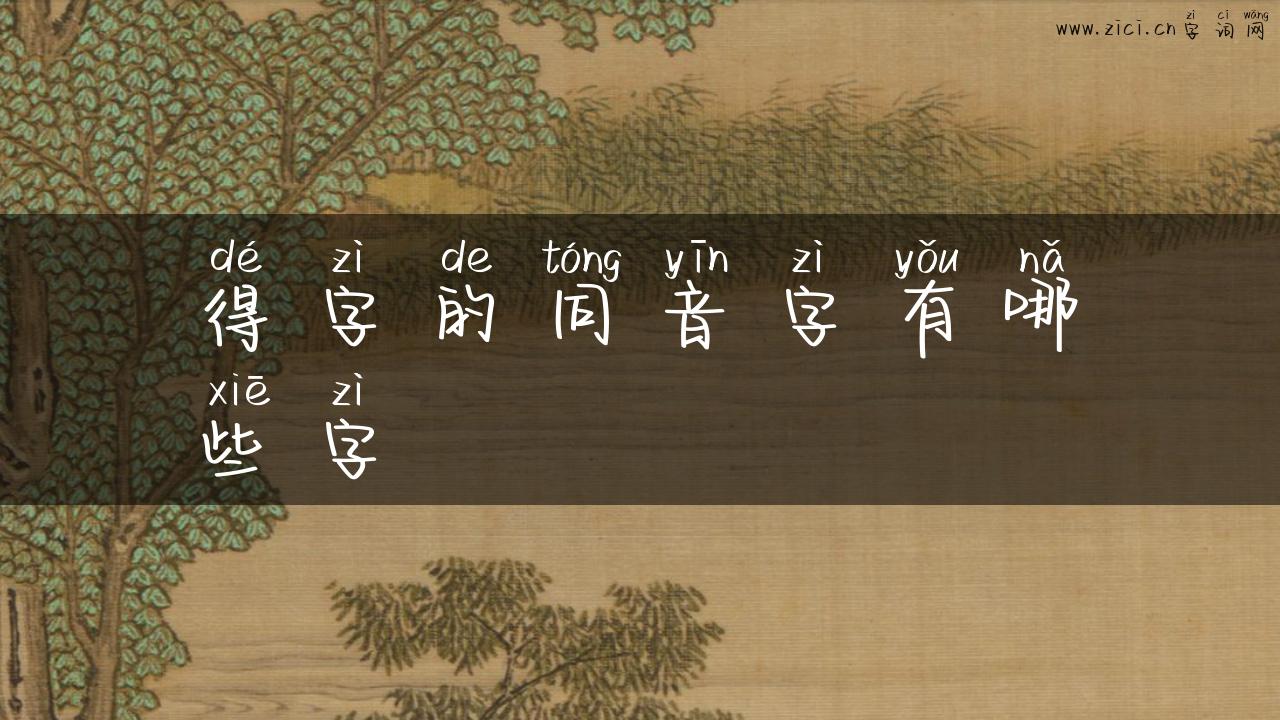 zì cí wǎng
www.zici.cn字词网
dé zì de tóng yīn zì yǒu nǎ
得字的同音字有哪
xiē zì
些字